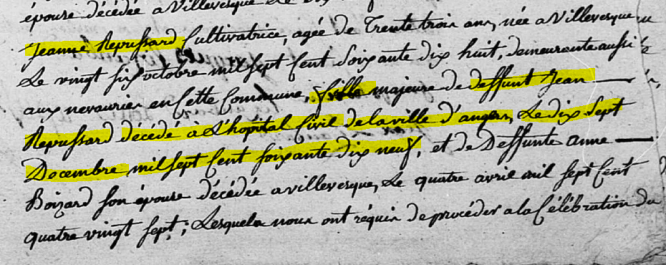 épouse décédée a Villevesque Le
Jeanne Repussard Cultivatrice, agée de Trente trois ans, née a Villevesque
Le vingt six octobre mil sept Cent Soixante dix huit, demeurante aussi
aux nevourien en Cette Commune, fille majeure de deffunt Jean
Repussard décédé a L'hôpital Civil de la ville d'angers, Le dix Sept
Decembre mil sept Cent soixante dix neuf, et de Deffunte anne
Boizard son épouse décédée a villevesque, Le quatre avril mil sept Cent
quatre vingt sept; Lesquels nous ont réquis de procéder a la Célébration du